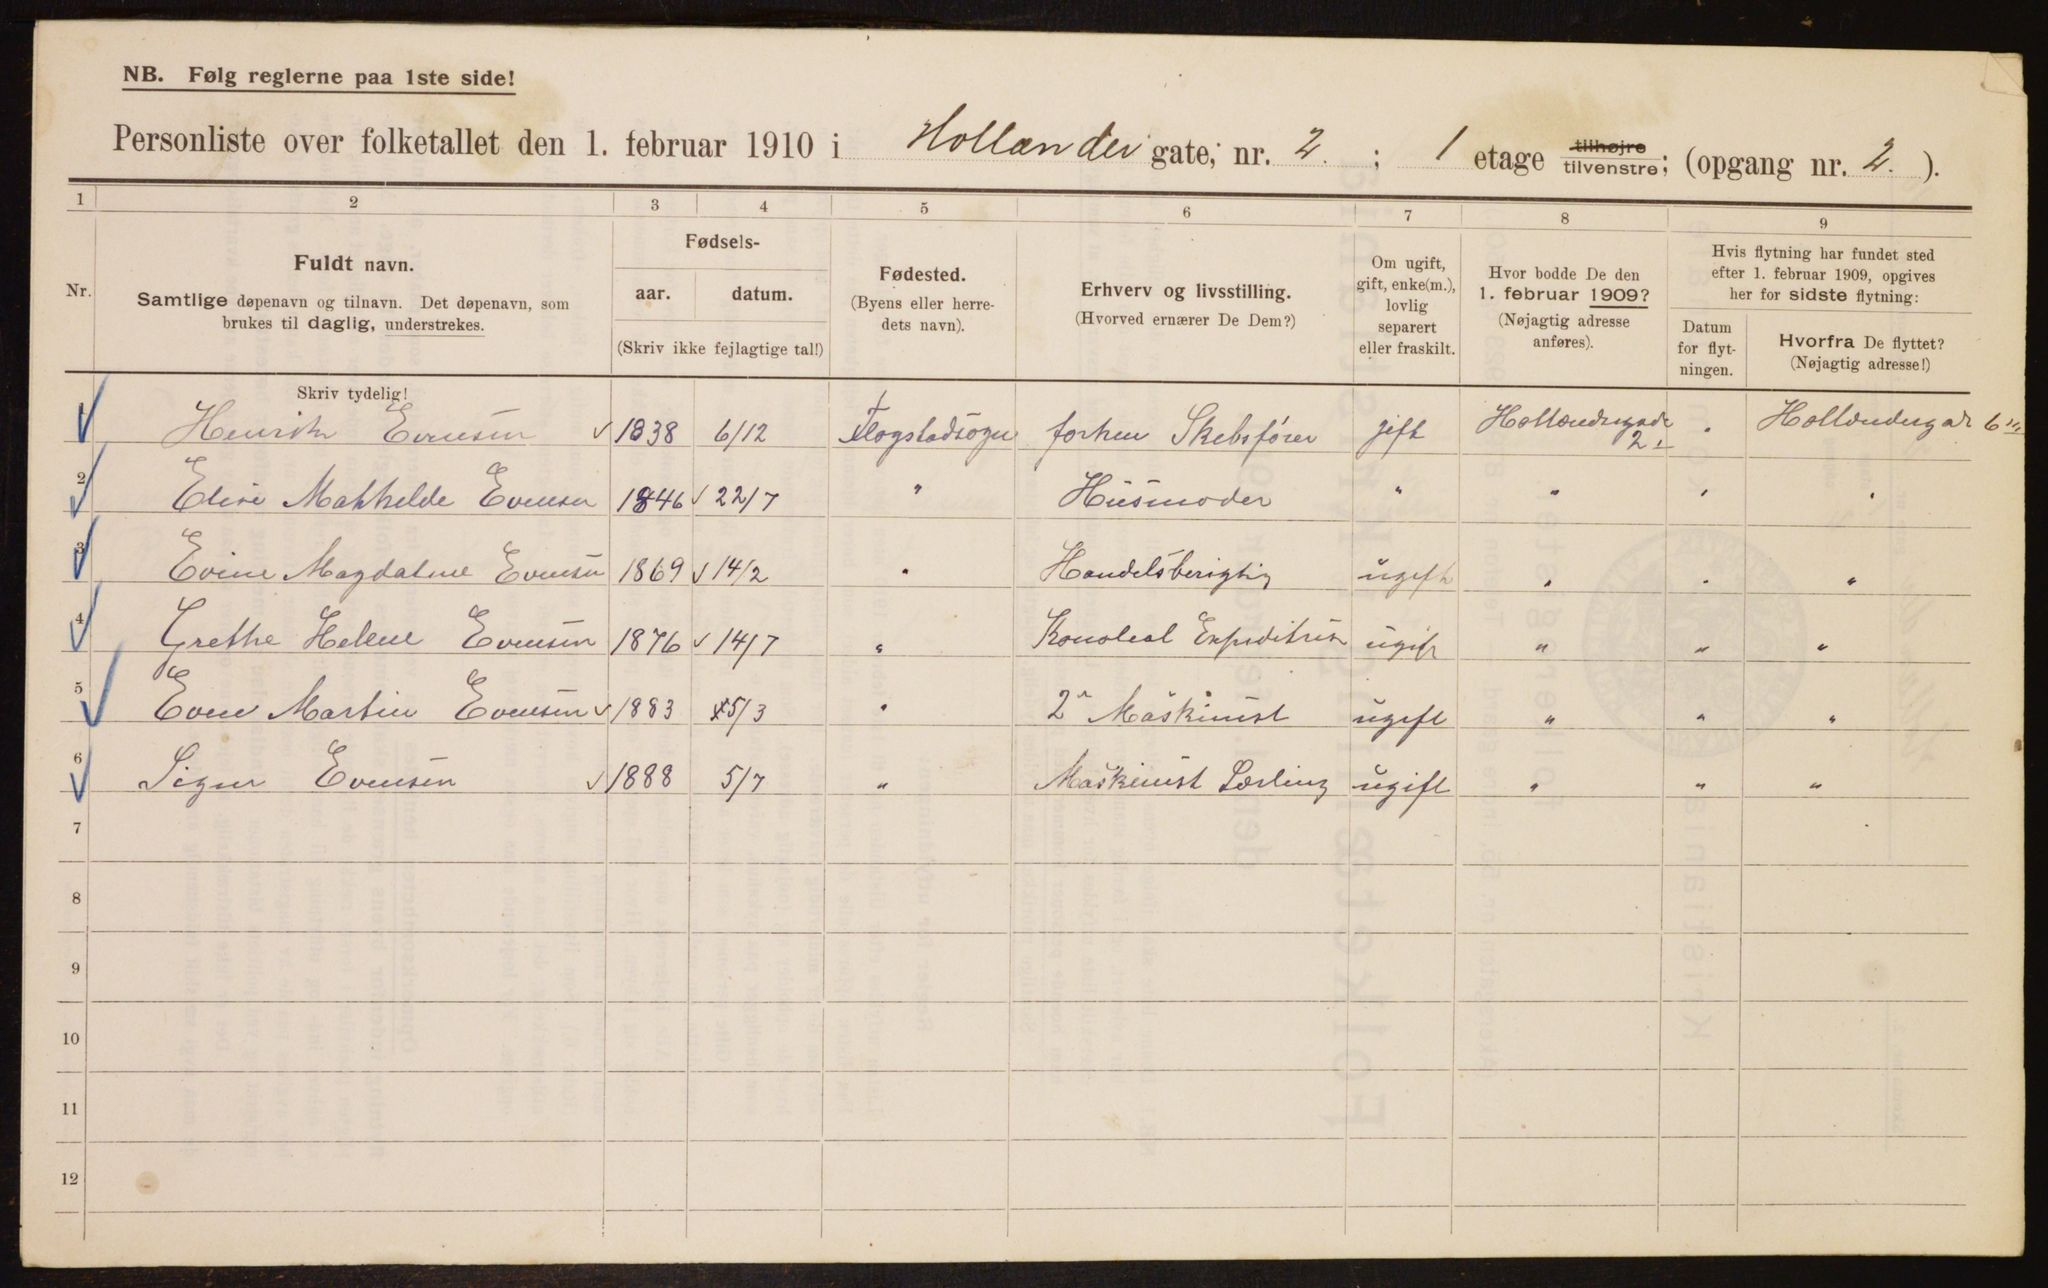 NB. Følg reglerne paa 1ste side!
Personliste over folketallet den 1. februar 1910 i Hollænder gate; nr. 2. ; 1 etage tilhøjre tilvenstre; (opgang nr. 2. ).
1 2 3 4 5 6 7 8 9
Nr.
Fuldt navn.
Samtlige døpenavn og tilnavn. Det døpenavn, som
brukes til daglig, understrekes.
Fødsels-
aar. datum.
(Skriv ikke fejlagtige tal!)
Fødested.
(Byens eller herre-
dets navn).
Erhverv og livsstilling.
(Hvorved ernærer De Dem?)
Om ugift,
gift, enke(m.),
lovlig
separert
eller fraskilt.
Hvor bodde De den
1. februar 1909?
(Nøjagtig adresse
anføres).
Hvis flytning har fundet sted
efter 1. februar 1909, opgives
her for sidste flytning:
Datum
for flyt-
ningen.
Hvorfra De flyttet?
(Nøjagtig adresse!)
Skriv tydelig!
1 Henrik Evensen 1838 6/12 forhen gift 2
2 Elise Mathilde Evensen 1846 22/7 " Husmoder " " " "
3 Evine Magdalene Evensen 1869 14/2 " Handelsberigtig ugift " " "
4 Grethe Helene Evensen 1876 14/7 " ugift " " "
5 Even Martin Evensen 1883 5/3 " 2n Maskinist ugift " " "
6 Evensen 1888 5/7 " Maskinist Lærling ugift " " "
7
8
9
10
11
12